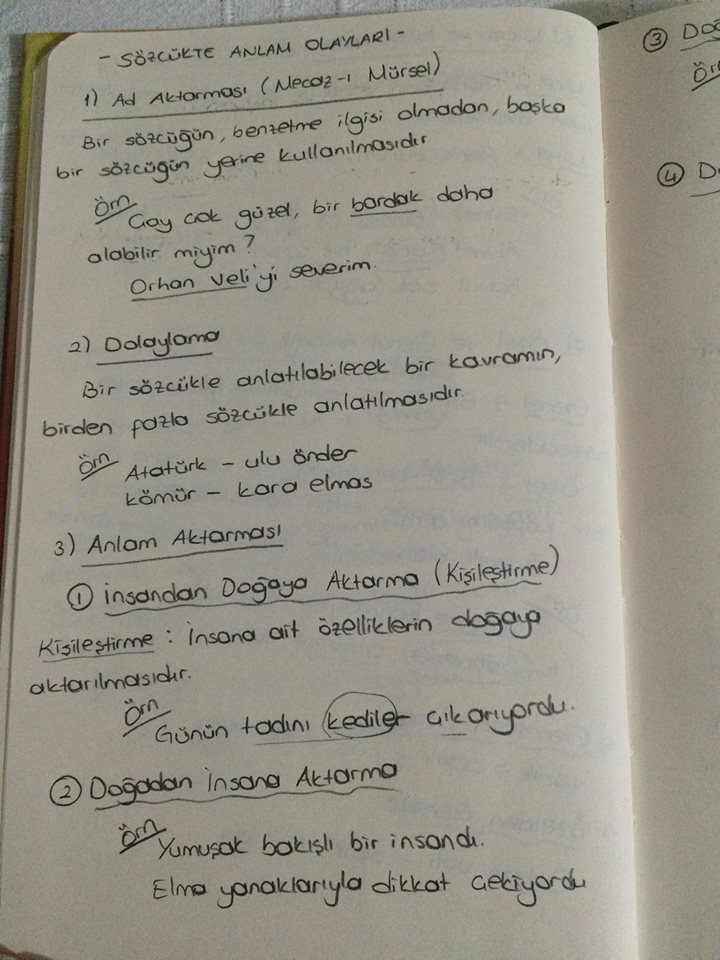 - SÖZCÜKTE ANLAM OLAYLARI -
1) Ad Aktarması (Mecaz-ı Mürsel)
Bir sözcüğün, benzetme ilgisi olmadan, başka
bir sözcüğün yerine kullanılmasıdır
Örn
Çay çok güzel, bir bardak daha
alabilir miyim?
Orhan Veli'yi severim.
2) Dolaylama
Bir sözcükle anlatılabilecek bir kavramın,
birden fazla sözcükle anlatılmasıdır.
Örn
Atatürk - ulu önder
kömür - kara elmas
3) Anlam Aktarması
① İnsandan Doğaya Aktarma (Kişileştirme)
Kişileştirme : İnsana ait özelliklerin doğaya
aktarılmasıdır.
Örn
Günün tadını kediler çıkarıyordu.
② Doğadan İnsana Aktarma
Örn
Yumuşak bakışlı bir insandı.
Elma yanaklarıyla dikkat çekiyordu
③
④